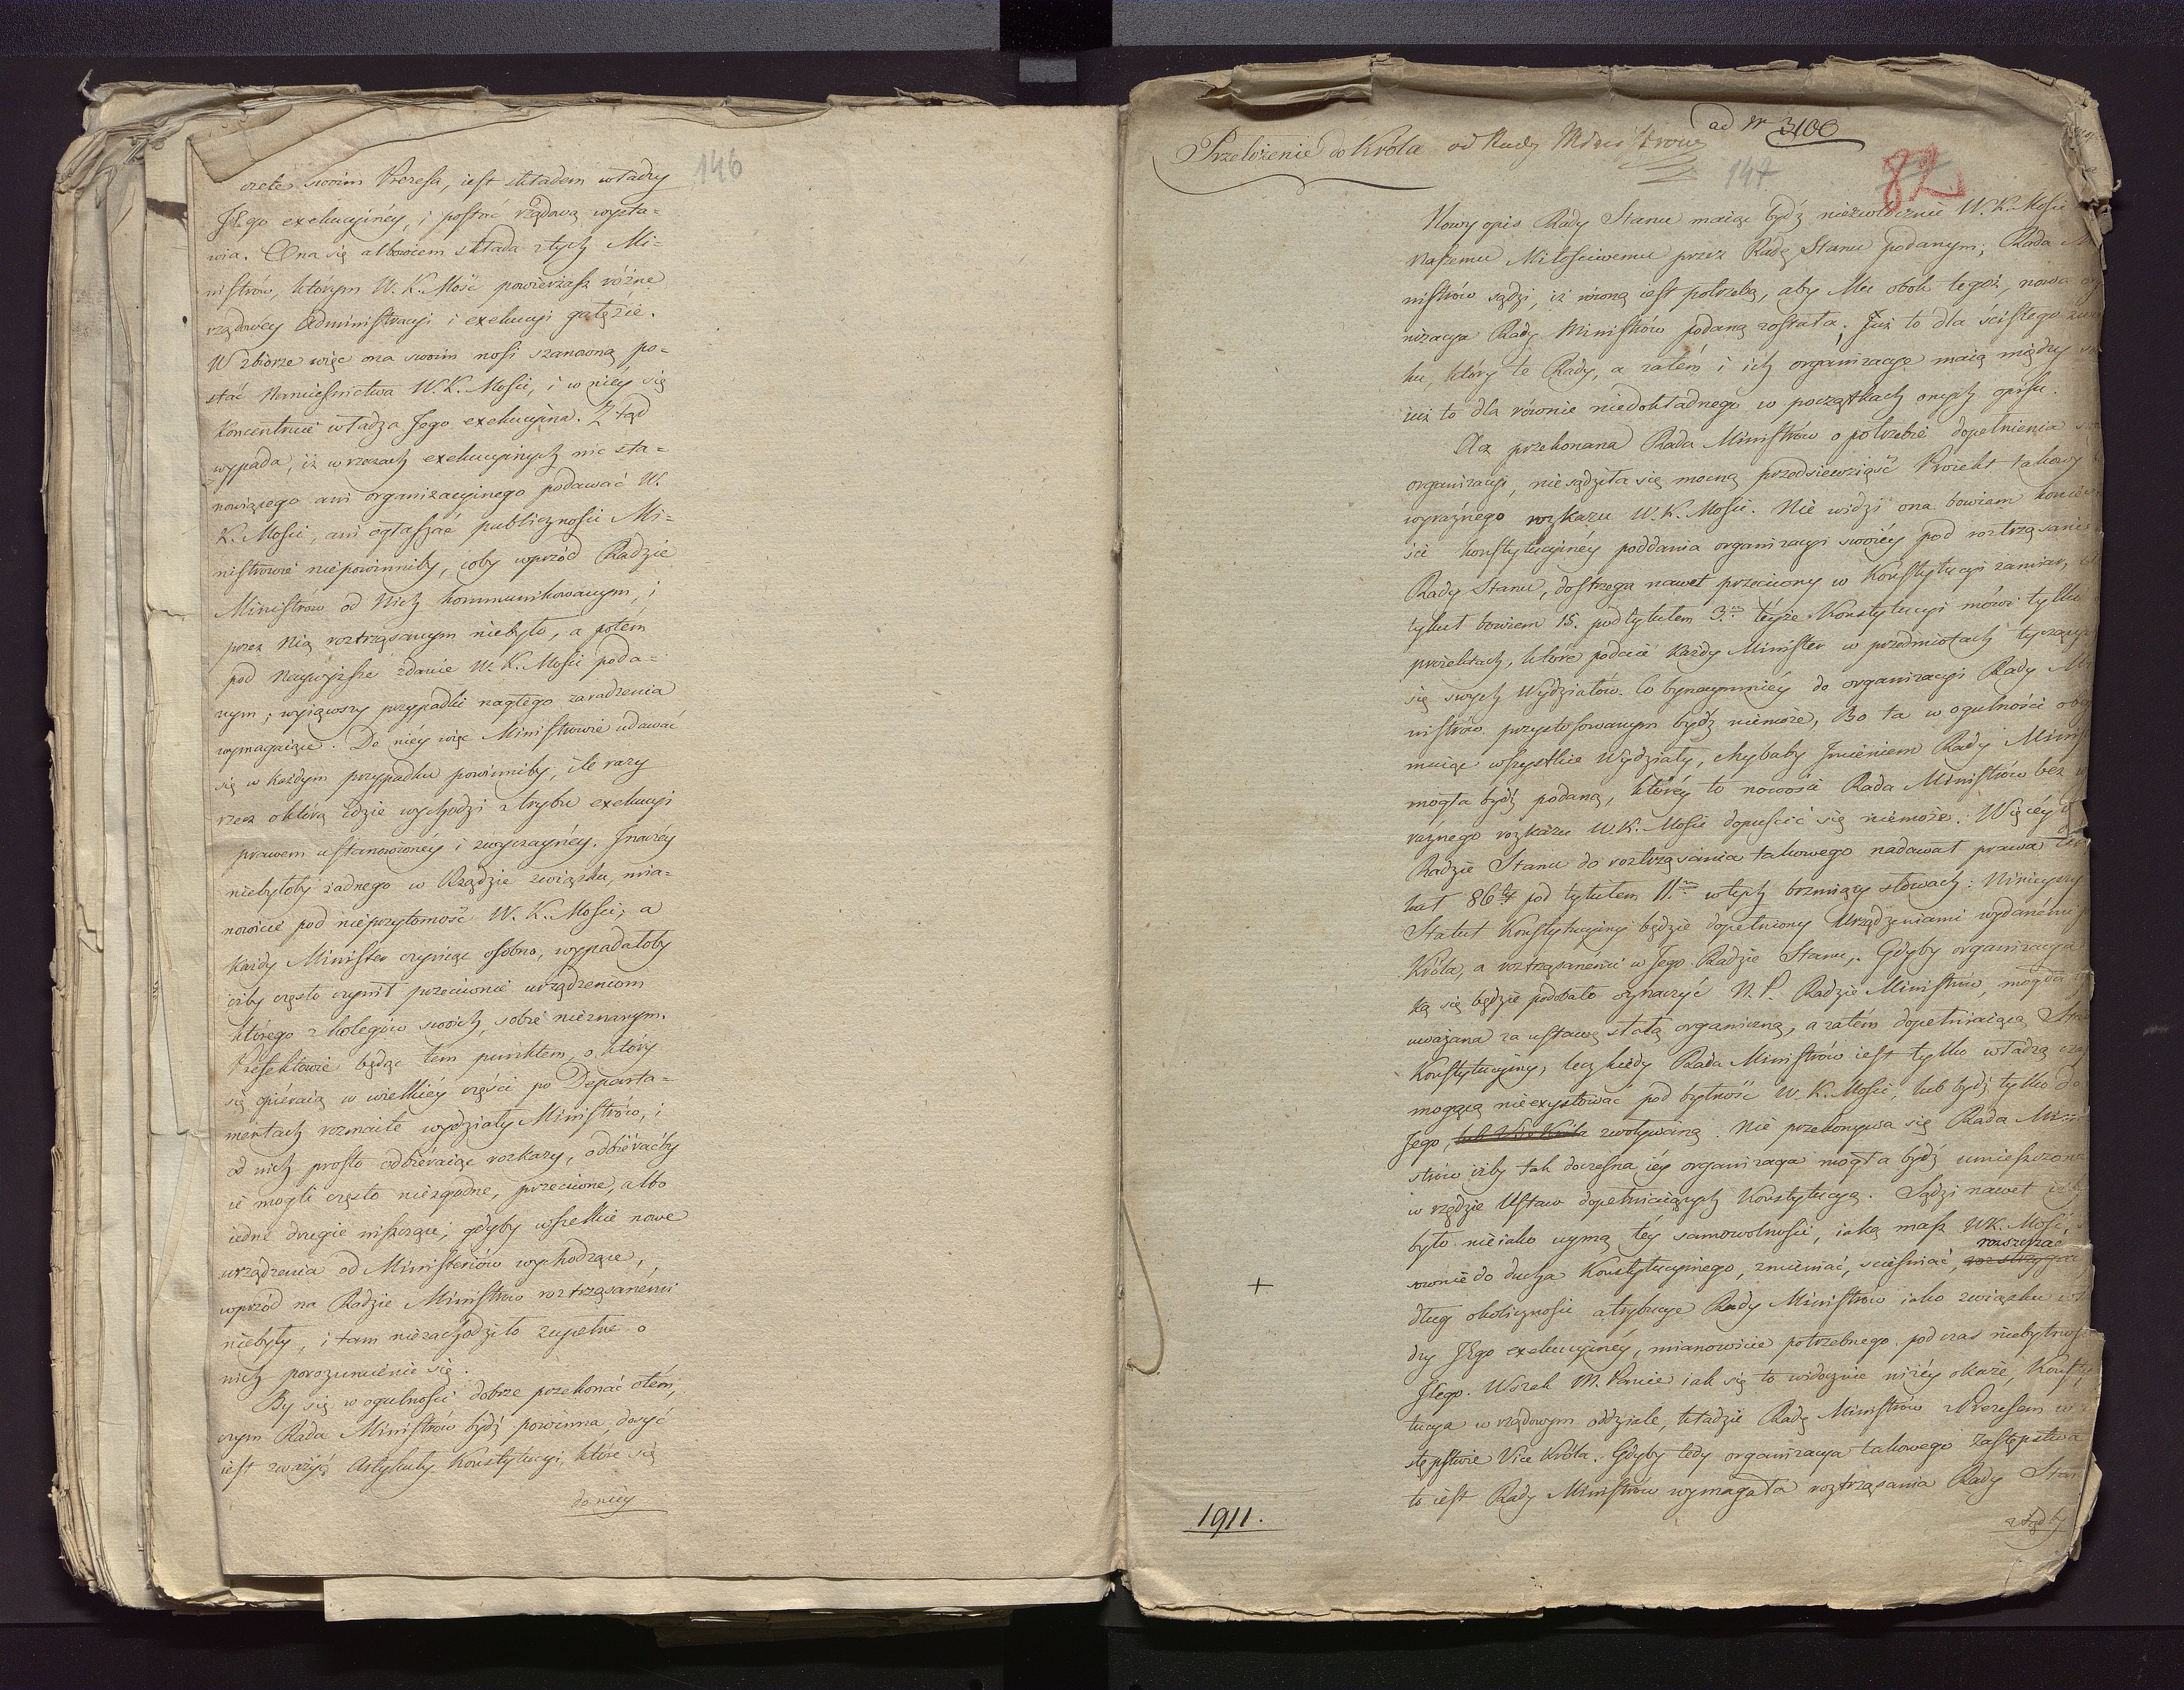 146
czele swoim Prezesa, iest składem władzy
JEgo exekucyinéy, i postać rządową wysta=
wia. Ona się albowiem składa z tych Mi=
nistrów, którym W. K. Mość powierzasz różne
rządowéy Administracyi i exekucyi gałęzie.
W zbiorze więc ona swoim nosi szanowną po=
stać Namiesnictwa W. K. Mości, i w niéy się
koncentruie władza Jego exekucyina. Ztąd
wypada, iż w rzeczach exekucyinych nic sta=
nowiącego ani organizacyinego podawać W.
K. Mości, ani ogłaszać publiczności Mi=
nistrowie niepowinniby, coby wprzód Radzie
Ministrów od Nich kommunikowanym, i
przez Nią roztrząsanym niebyło, a potém
pod Naywyższe zdanie W. K. Mości poda=
nym; wyiąwszy przypadki nagłego zaradzenia
wymagaiące. Do niéy więc Ministrowie udawać
się w każdym przypadku powinniby, ile razy
rzecz o którą idzie wychodzi z trybu exekucyi
prawem ustanowionéy i zwyczaynéy. Inaczéy
niebyłoby żadnego w Rządzie związku, mia=
nowicie pod nieprzytomość W. K. Mości; a
każdy Minister czyniąc osobno, wypadałoby
iżby często czynił przeciwnie urządzeniom
którego z kolegów swoich, sobie nieznanym.
Prefektowie będąc tem punktem, o który
się opieraią w wielkiéy części po Departa=
mentach rozmaite wydziały Ministrów, i
od nich prosto odbieraiąc rozkazy, odbieraćby
ie mogli często niezgodne, przeciwne, albo
iedne drugie niszczące; gdyby wszelkie nowe
urządzenia od Ministeriów wychodzące,
wprzód na Radzie Ministrów roztrząsanémi
niebyły, i tam niezachodziło zupełne o
nich porozumienie się.
By się w ogulności dobrze przekonać o tem,
czym Rada Ministrów bydź powinna, dosyć
iest zważyć Artykuły Konstytucyi, które się
do niéy
ad Nr 3106
Przełożenie do Króla od Rady Ministrow
147
82
Nowy opis Rady Stanu maiąc bydź niezwłocznie W. K. Mości
Naszemu Miłościwemu przez Radę Stanu podanym; Rada Mi
nistrów sądzi, iż równą iest potrzebą, aby Mu obok tegoż, nowa
nizacya Rady Ministrów podaną została; Już to dla ścisłego
ku, który te Rady, a zatém i ich organizacye maią między
iuż to dla równie niedokładnego w początkach onych opisu.
Acz przekonana Rada Ministrów o potrzebie dopełnienia
organizacyi, nie sądziła się mocną przedsiewziąść Proiekt takowy
wyraźnego rozkazu W. K. Mości. Nie widzi ona bowiem
ści konstytucyinéy poddania organizacyi swoiéy pod roztrząsanie
Rady Stanu, dostrzega nawet przeciwny w Konstytucyi zamiar,
tykuł bowiem 15. pod tytułem 3.m téyże Konstytucyi mówi tylko
proiektach, które podaie każdy Minister w przedmiotach tyczących
się swych Wydziałów. Co bynaymniéy do organizacyi Rady Mi
nistrów przystosowanym bydź niemoże, Bo ta w ogulności
muiąc wszystkie Wydziały, chybaby Imieniem Rady Minist
mogła bydź podaną, któréy to nowości Rada Ministrów bez
raźnego rozkazu W. K. Mości dopuścić się niemoże. Więcéy
Radzie Stanu do roztrząsania takowego nadawał prawa
kuł 86ty pod tytułem 11.m w tych brzmiący słowach: Ninieyszy
Statut Konstytucyiny będzie dopełniony Urządzeniami wydanémi
Króla, a roztrząsanemi w Jego Radzie Stanu. Gdyby organizacya
ką się będzie podobało wyznaczyć N. P. Radzie Ministrów, mogła
uważana za ustawę stałą organiczną, a zatém dopełniaiącą
Konstytucyiny, lecz kiedy Rada Ministrów iest tylko władzą
mogącą nieexystować pod bytność W. K. Mości, lub bydź tylko do
Jego, lub Vice Króla zwoływaną. Nie przekonywa się Rada Mini=
strów iżby tak doczesna iéy organizacya mogła bydź umieszczona
w rzędzie Ustaw dopełniaiących Konstytucyą. Sądzi nawet iż
było nieiako uymą téy samowolności, iaką masz WK. Mość,
rozszerzać
+
równie do ducha Konstytucyinego, zmieniać, ścieśniać,
dług okoliczności atrybucye Rady Ministrów iako związku
dzy JEgo exekucyinéy, mianowicie potrzebnego pod czas niebytności
JEgo. Wszak N. Panie iak się to widocznie niżéy okaże, Konsty
tucya w rządowym oddziale, kładzie Radę Ministrów z Prezesem w
stępstwie Vice Króla. Gdyby tedy organizacya takowego Zastępstwa
to iest Rady Ministrów wymagała roztrząsania Rady Stan
1911.
ztądby